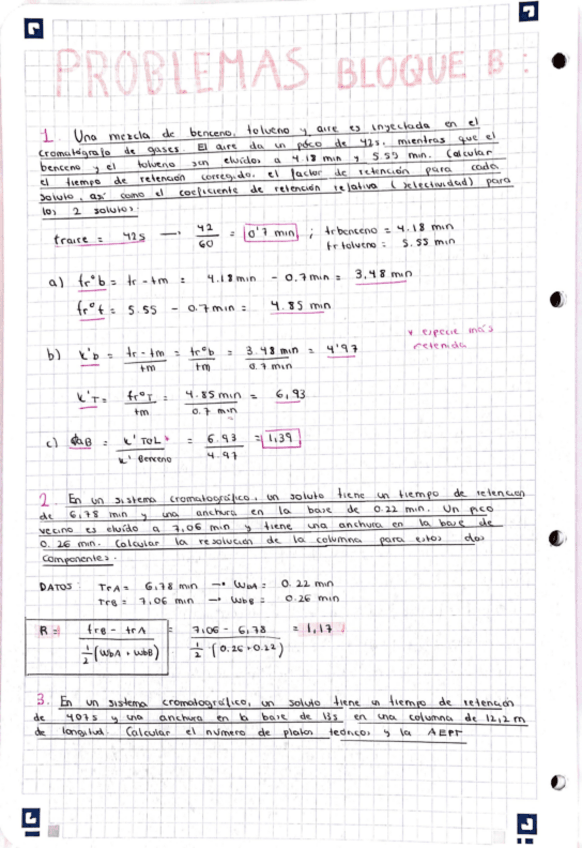 PROBLEMAS BLOQUE B:
1. Una mezcla de benceno, tolueno y aire es inyectada en el
cromatógrafo de gases. El aire da un pico de 42s, mientras que el
benceno y el tolueno son eluidos a 4.18 min y 5.55 min. Calcular
el tiempo de retención corregido, el factor de retención para cada
soluto, así como el coeficiente de retención relativa (selectividad) para
los 2 solutos.
traire = 42s → 42/60 = 0'7 min ; trbenceno = 4.18 min
trtolueno = 5.55 min
a) tr°b = tr - tm = 4.18 min - 0.7min = 3,48 min
tr°t = 5.55 - 0.7min = 4.85 min
* especie más
retenida
b) k'b = tr - tm / tm = tr°b / tm = 3.48 min / 0.7 min = 4'97
k'T = tr°T / tm = 4.85 min / 0.7 min = 6,93
c) αAB = k' TOL* / k' Benceno = 6.93 / 4.97 = 1,39
2. En un sistema cromatográfico, un soluto tiene un tiempo de retención
de 6,78 min y una anchura en la base de 0.22 min. Un pico
vecino es eluido a 7,06 min y tiene una anchura en la base de
0.26 min. Calcular la resolución de la columna para estos dos
componentes.
DATOS: TrA = 6,78 min → WbA = 0.22 min
TrB = 7,06 min → WbB = 0.26 min
R = trB - trA / 1/2 (WbA + WbB) = 7,06 - 6,78 / 1/2 (0.26+0.22) = 1,17
3. En un sistema cromatográfico, un soluto tiene un tiempo de retención
de 407s y una anchura en la base de 13s en una columna de 12,2 m
de longitud. Calcular el número de platos teóricos y la AEPT